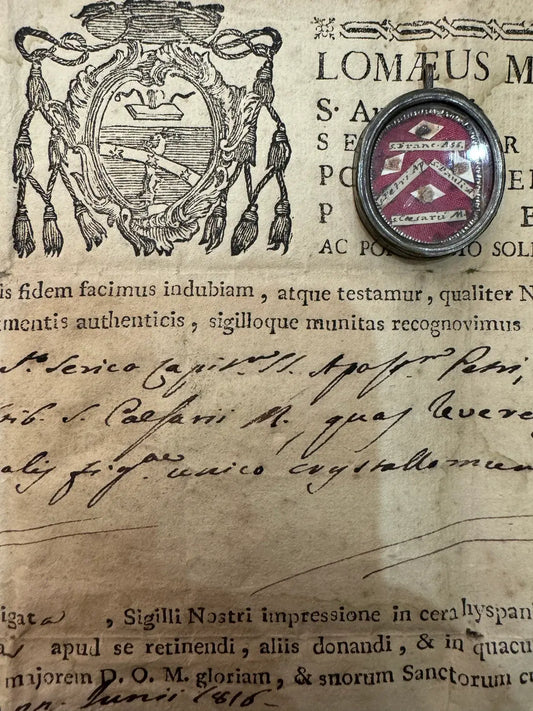 LOMÆUS M
S. Au
SE R
PO E
P E
AC PO IO SOLI
S. Franc. Ass.
S. Petri Ap.
S. Pauli A.
S. Cæsarii M.
is fidem facimus indubiam, atque testamur, qualiter N
mentis authenticis, sigilloque munitas recognovimus
Serico Capit. SS. Apos Petri,
rib. S. Cæsarii M. quas Revere
alis fig unico crystallo mun
igata , Sigilli Nostri impressione in cera hyspan
as apud se retinendi, aliis donandi, & in quacu
majorem D. O. M. gloriam, & snorum Sanctorum cu
Junii 1816.